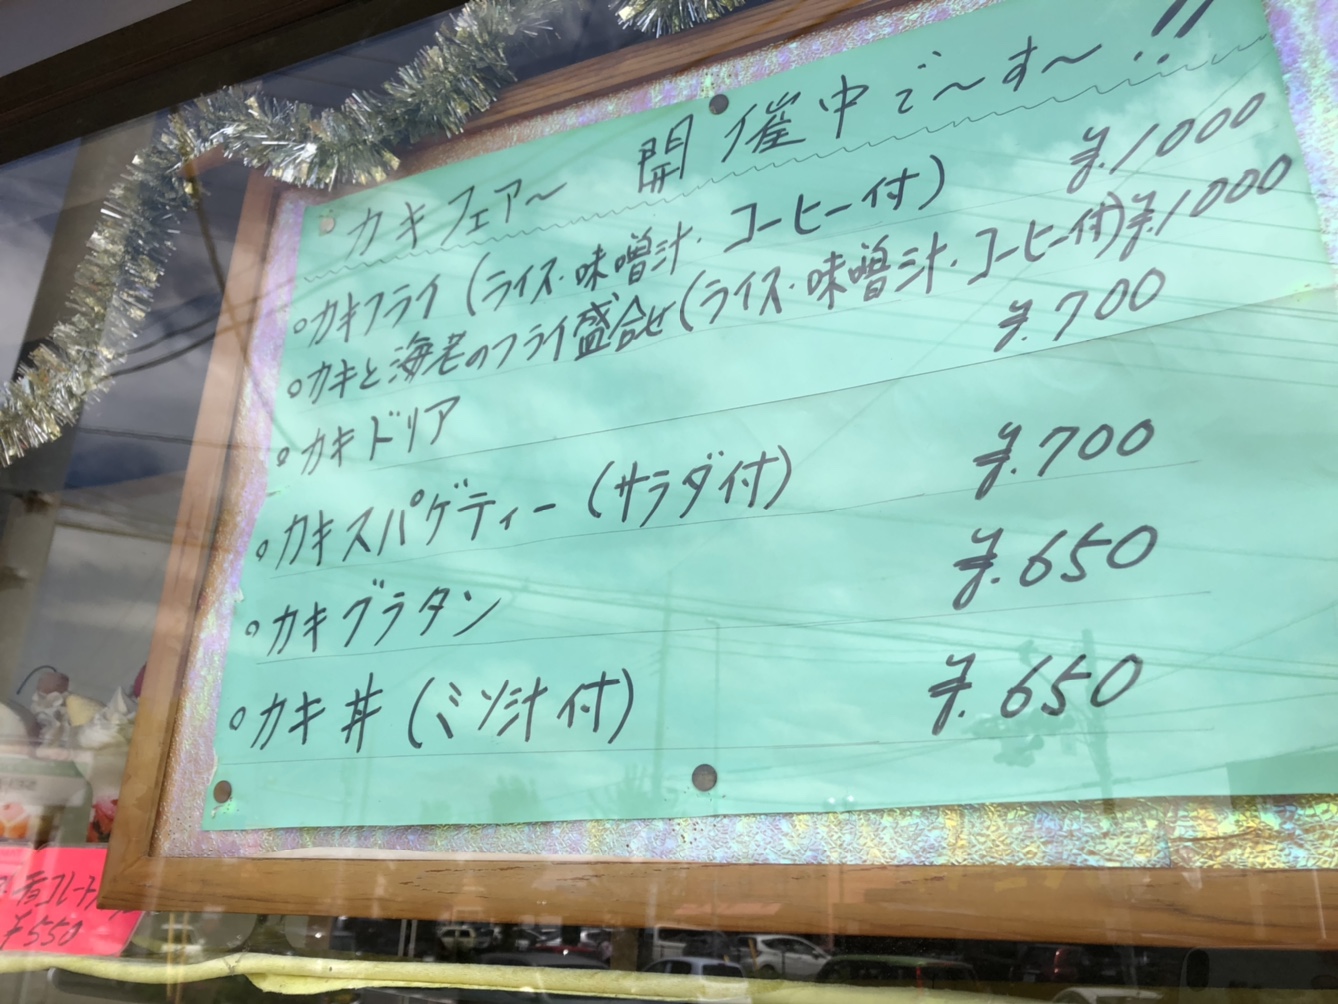 カキフェア〜 開催中で〜す〜!!
○カキフライ(ライス・味噌汁・コーヒー付) ¥.1000
○カキと海老のフライ盛合せ(ライス・味噌汁・コーヒー付) ¥.1000
○カキドリア ¥.700
○カキスパゲティー(サラダ付) ¥.700
○カキグラタン ¥.650
○カキ丼(ミソ汁付) ¥.650
¥550